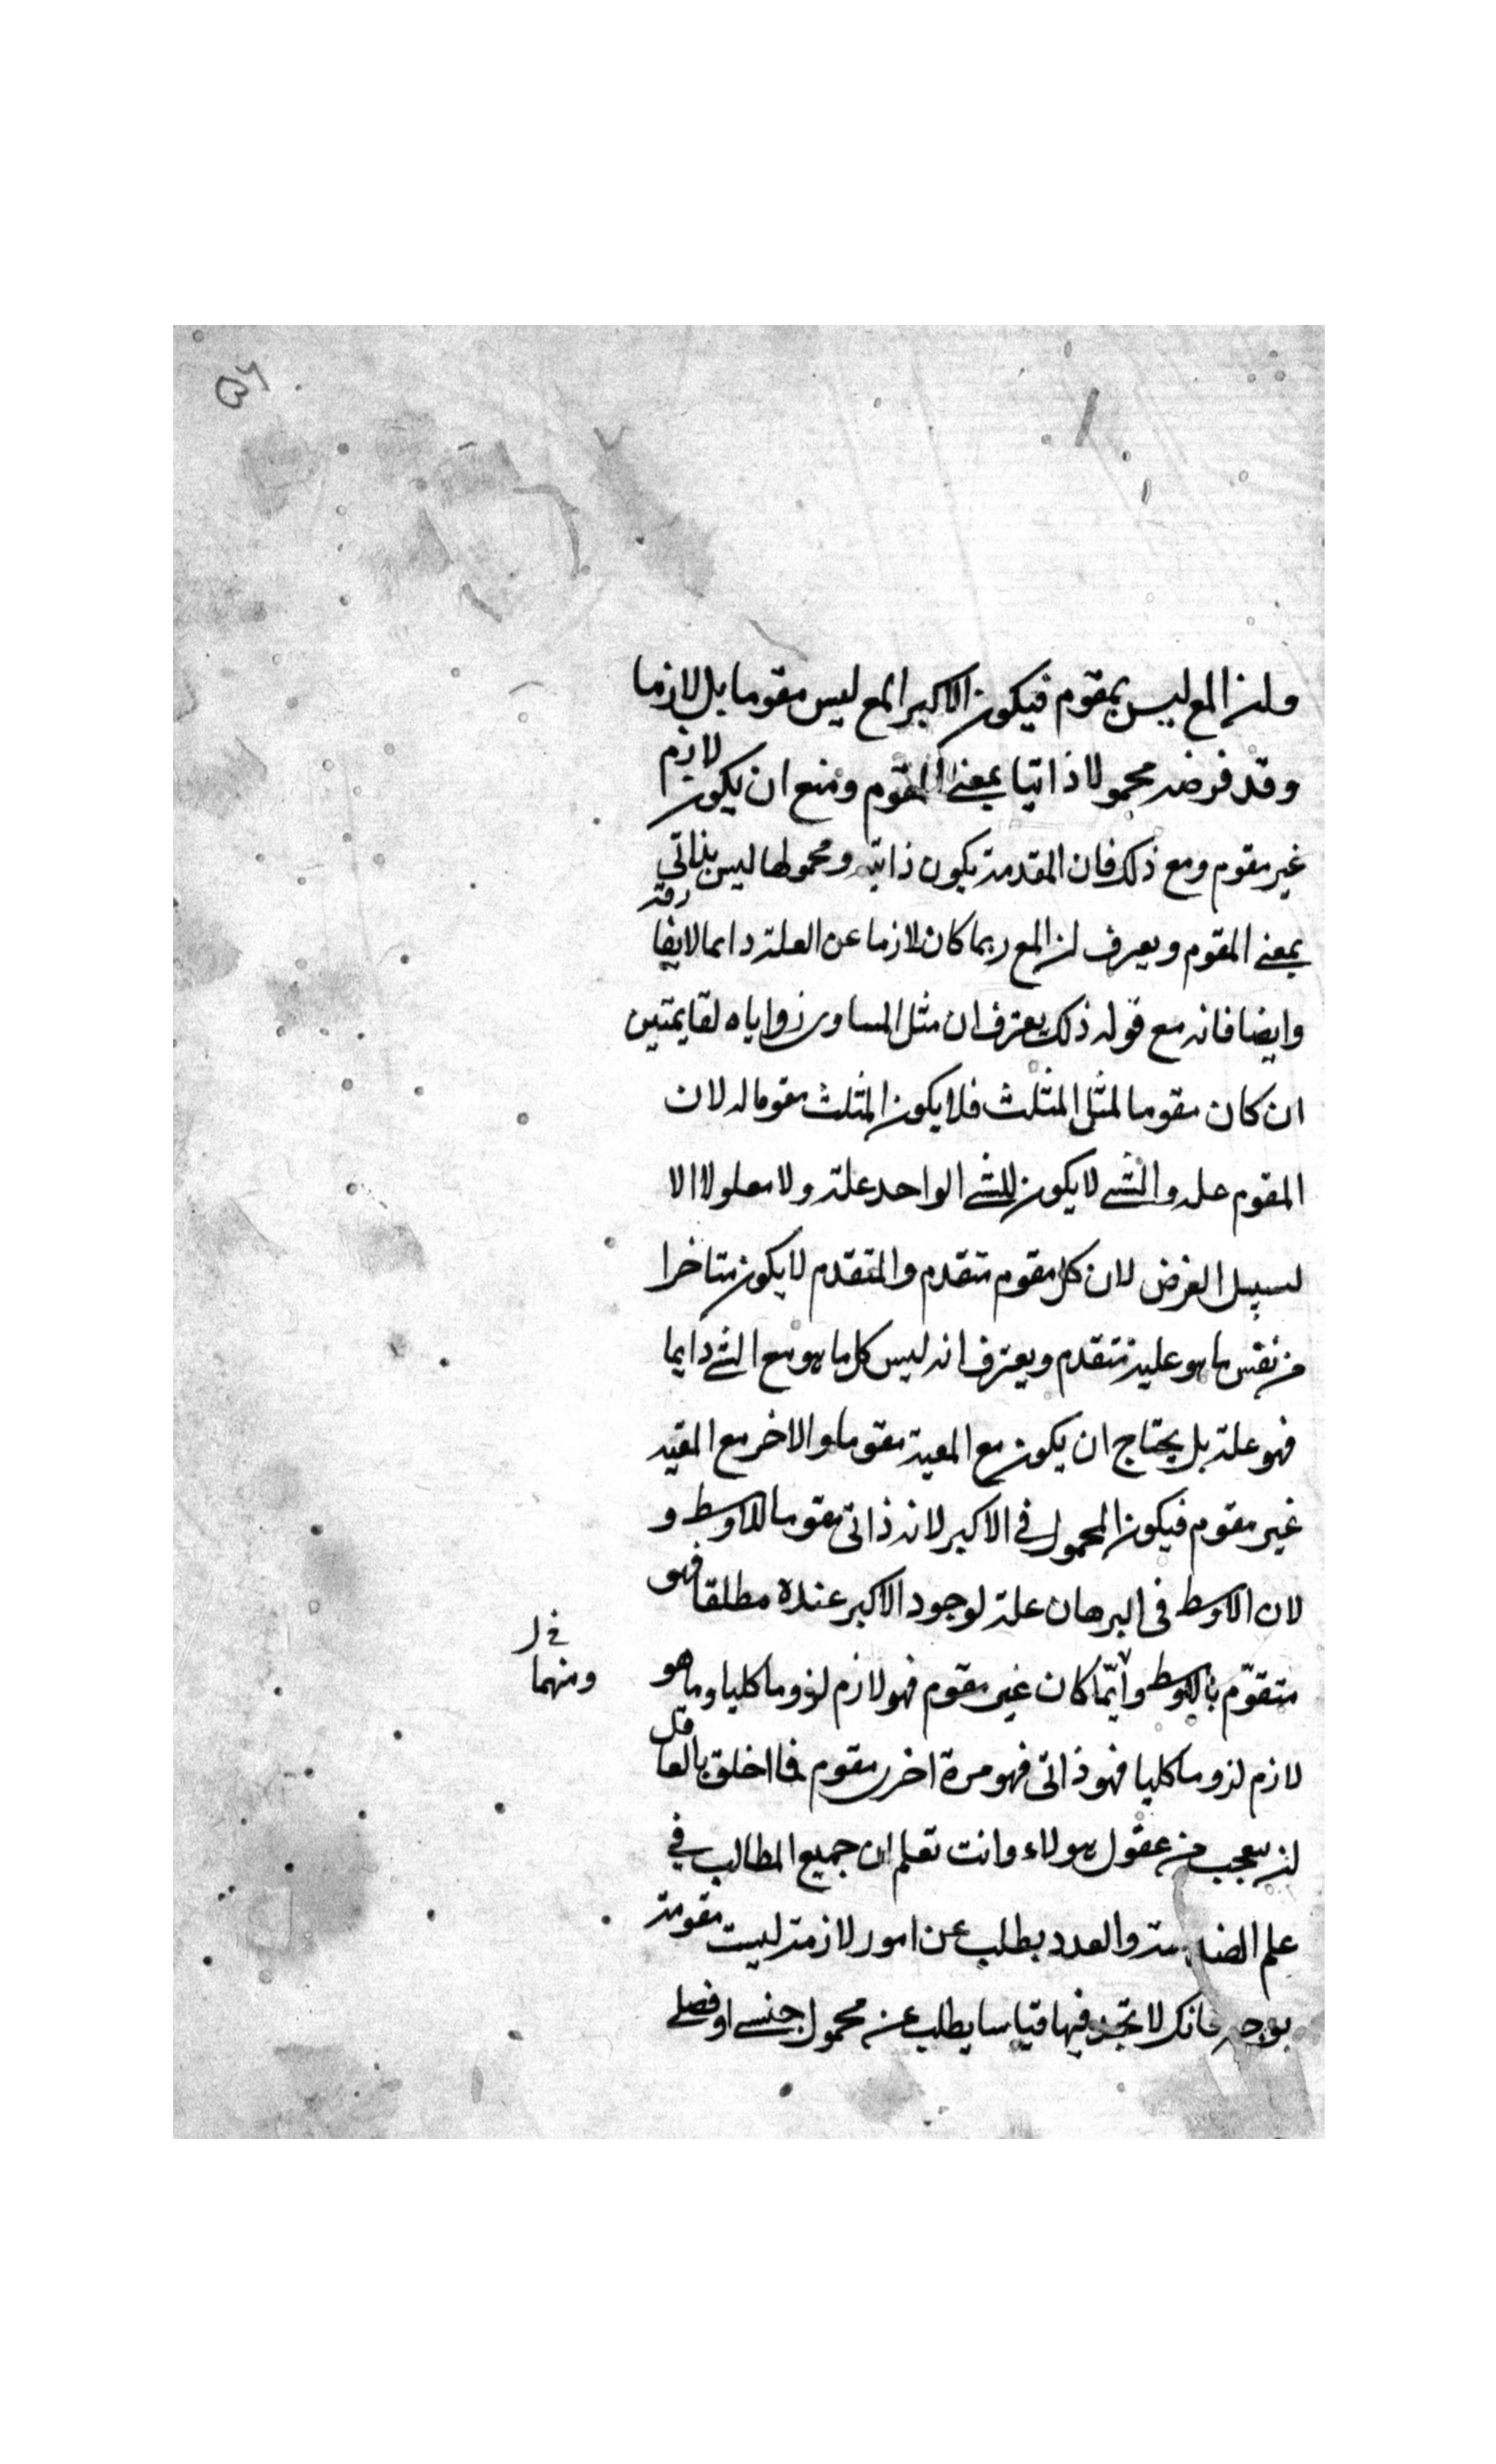 ولن المع ليس بمقوم فيكون الاكبر المع ليس مقوما بل لازما
وقد فرضه محمولا ذاتيا بمعنى المقوم ومنع ان يكون لازم
غير مقوم ومع ذلك فان المقدمة يكون ذاتية ومحمولها ليس بذاتي
بمعنى المقوم ويعرف لن المع ربما كان لازما عن العلة دايما لا يفارقه
وايضا فانه مع قوله ذلك يعترف ان مثل المساوى زواياه لقايمتين
ان كان مقوما لمثل المثلث فلا يكون المثلث مقوما له لان
المقوم عله والشي لا يكون للشي الواحد علة ولا معلولا الا
لسبيل العرض لان كل مقوم متقدم والمتقدم لا يكون متاخرا
من نفس ما هو عليه متقدم ويعترف انه ليس كل ما هو مع الشي دايما
فهو علة بل يحتاج ان يكون مع المعية مقوما والاخر مع المقيد
غير مقوم فيكون المحمول في الاكبر لانه ذاتى مقوما للاوسط و
لان الاوسط فى البرهان علة لوجود الاكبر عنده مطلقا فهو
متقوّم بالاوسط وأيّما كان غير مقوم فهو لازم لزوما كليا وما هو
ومنهما
لازم لزوما كليا فهو ذاتى فهو مرة اخرى مقوم فما اخلق بالعاقل
لن يعجب من عقول هولاء وانت تعلم ان جميع المطالب في
علم الهندسة والعدد يطلب عن امور لازمة ليست مقومة
بوجه فانك لا تجد فيها قياسا يطلب عن محمول جنسي او فصلي